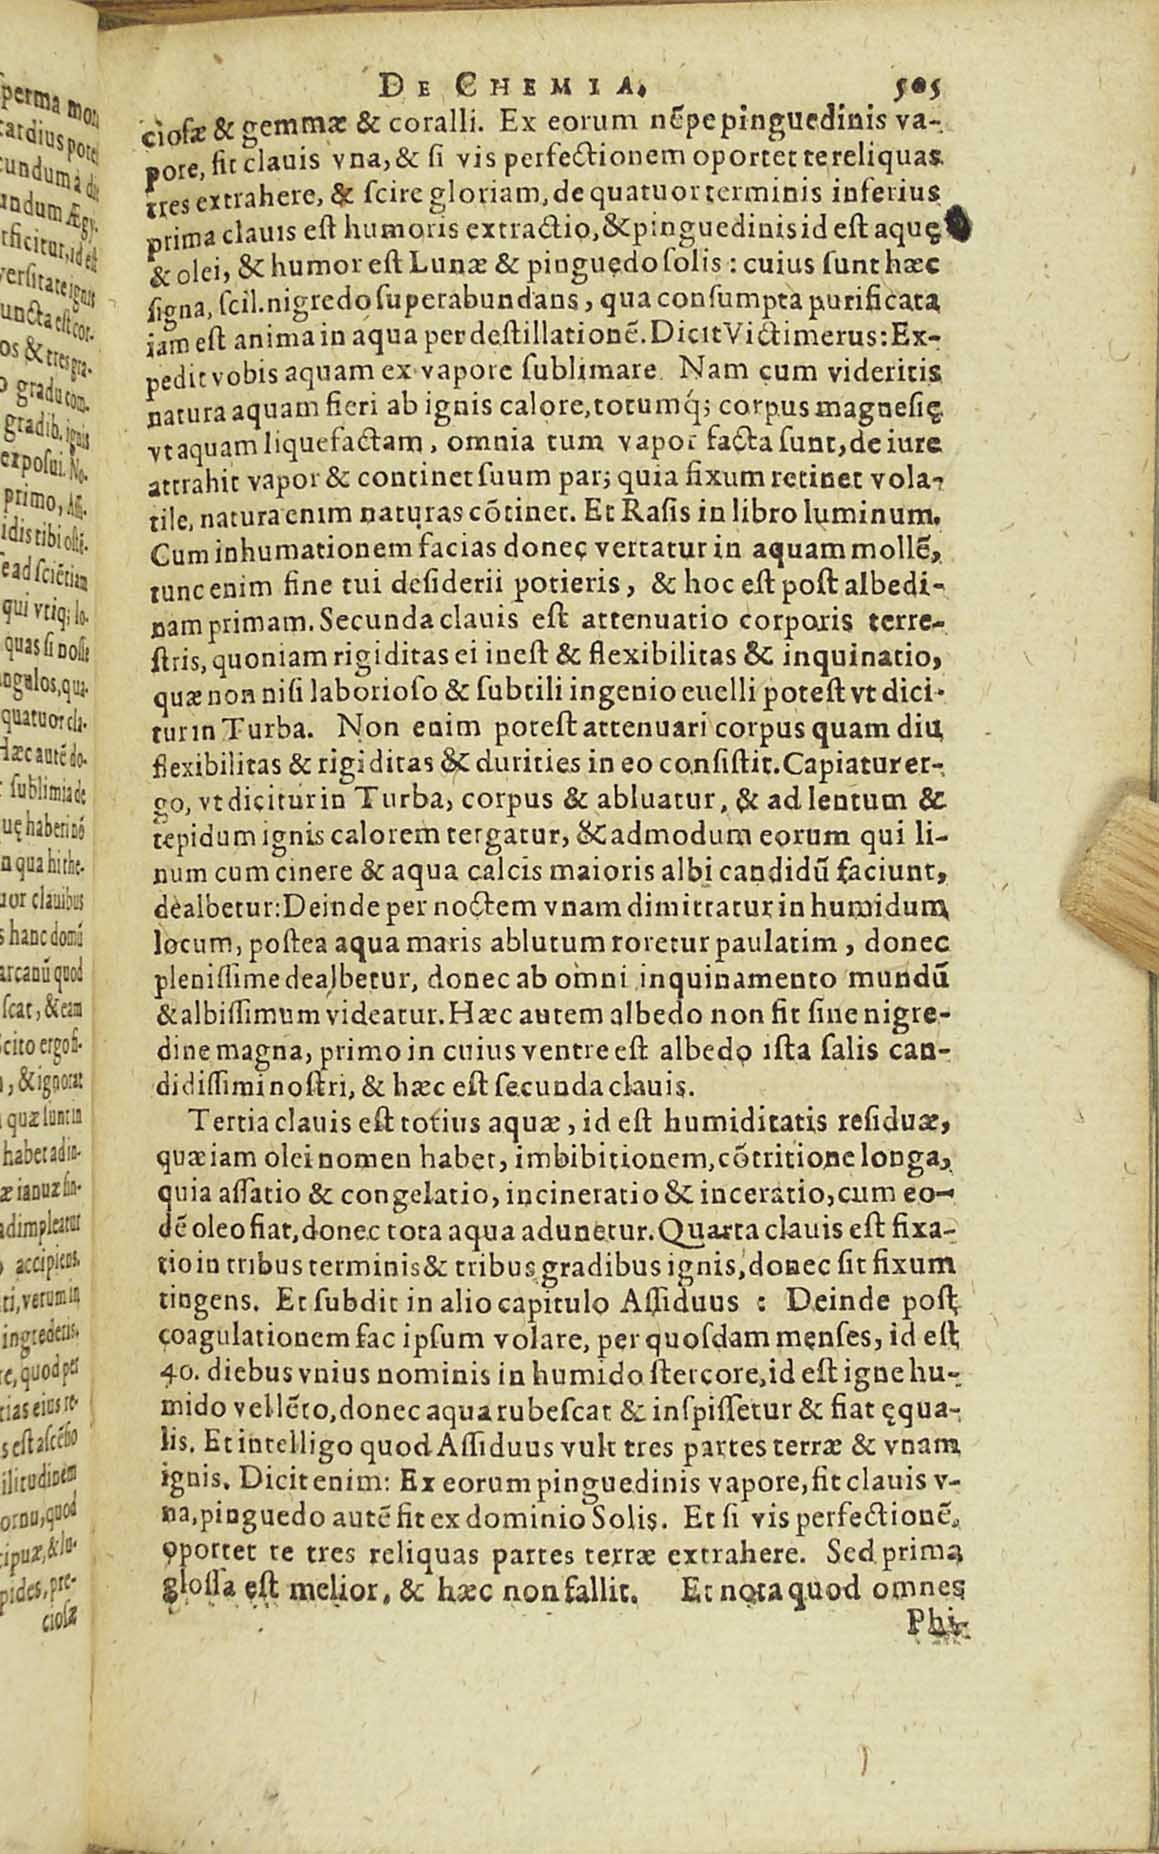 DE CHEMIA. 505
ciosæ & gemmæ & coralli. Ex eorum nēpe pinguedinis va-
pore, fit clauis vna, & si vis perfectionem oportet te reliquas
tres extrahere, & scire gloriam, de quatuor terminis inferius
prima clauis est humoris extractio, & pinguedinis id est aquę
& olei, & humor est Lunæ & pinguedo solis : cuius sunt hæc
signa, scil. nigredo superabundans, qua consumpta purificata
iam est anima in aqua per destillationē. Dicit Victimerus: Ex-
pedit vobis aquam ex vapore sublimare. Nam cum videritis
natura aquam fieri ab ignis calore, totumq́; corpus magnesię
vt aquam liquefactam, omnia tum vapor facta sunt, de iure
attrahit vapor & continet suum par; quia fixum retinet vola-
tile, natura enim naturas cōtinet. Et Rasis in libro luminum.
Cum inhumationem facias donec vertatur in aquam mollē,
tunc enim fine tui desiderii potieris, & hoc est post albedi-
nam primam. Secunda clauis est attenuatio corporis terre-
stris, quoniam rigiditas ei inest & flexibilitas & inquinatio,
quæ non nisi laborioso & subtili ingenio euelli potest vt dici-
tur in Turba. Non enim potest attenuari corpus quam diu
flexibilitas & rigiditas & durities in eo consistit. Capiatur er-
go, vt dicitur in Turba, corpus & abluatur, & ad lentum &
tepidum ignis calorem tergatur, & admodum eorum qui li-
num cum cinere & aqua calcis maioris albi candidū faciunt,
dealbetur: Deinde per noctem vnam dimittatur in humidum
locum, postea aqua maris ablutum toretur paulatim, donec
plenissime dealbetur, donec ab omni inquinamento mundū
& albissimum videatur. Hæc autem albedo non fit sine nigre-
dine magna, primo in cuius ventre est albedo ista salis can-
didissimi nostri, & hæc est secunda clauis.
Tertia clauis est totius aquæ, id est humiditatis residuæ,
quæ iam olei nomen habet, imbibitionem, cōtritione longa,
quia assatio & congelatio, incineratio & inceratio, cum eo-
dē oleo fiat, donec tota aqua adunetur. Quarta clauis est fixa-
tio in tribus terminis & tribus gradibus ignis, donec sit fixum
tingens. Et subdit in alio capitulo Assiduus : Deinde post
coagulationem fac ipsum volare, per quosdam menses, id est
40. diebus vnius nominis in humido stercore, id est igne hu-
mido vellēto, donec aqua rubescat & inspissetur & fiat ęqua-
lis. Et intelligo quod Assiduus vult tres partes terræ & vnam
ignis. Dicit enim: Ex eorum pinguedinis vapore, fit clauis v-
na, pinguedo autē fit ex dominio Solis. Et si vis perfectionē,
oportet te tres reliquas partes terræ extrahere. Sed prima
glossa est melior, & hæc non fallit. Et nota quod omnes
Phi-
sperma mon
tardius potest
secundum à di
primo, Assi-
idis tibi ostē-
ead sciētiam
qui vtiq; lo-
quas si nosse
angulos, qua-
quatuor cla-
Hæc autē do-
sublimia de
uę haberi nō
n qua hi the-
uor clauibus
s hanc domū
arcanū quod
scat, & eam
Scito ergo fi-
, & ignorat
quæ sunt in
habet ad in-
æ ianuæ sin-
adimpleatur
accipiens,
ti, verum in
ingrederis,
re, quod per
tias eius re-
s est ascēsio
ilitudinem
ornu, quod
cipuæ, & lu-
pides, pre-
ciosæ